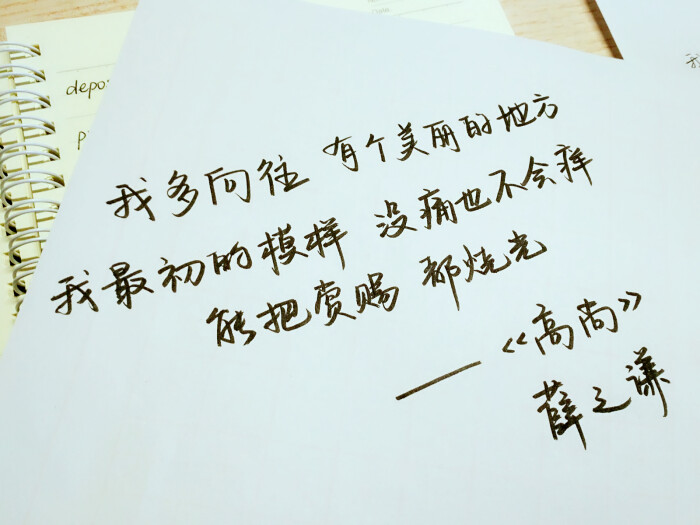 我多向往 有个美丽的地方
我最初的模样 没痛也不会痒
能把赏赐 都烧光
——《高尚》
薛之谦
depo
p
我